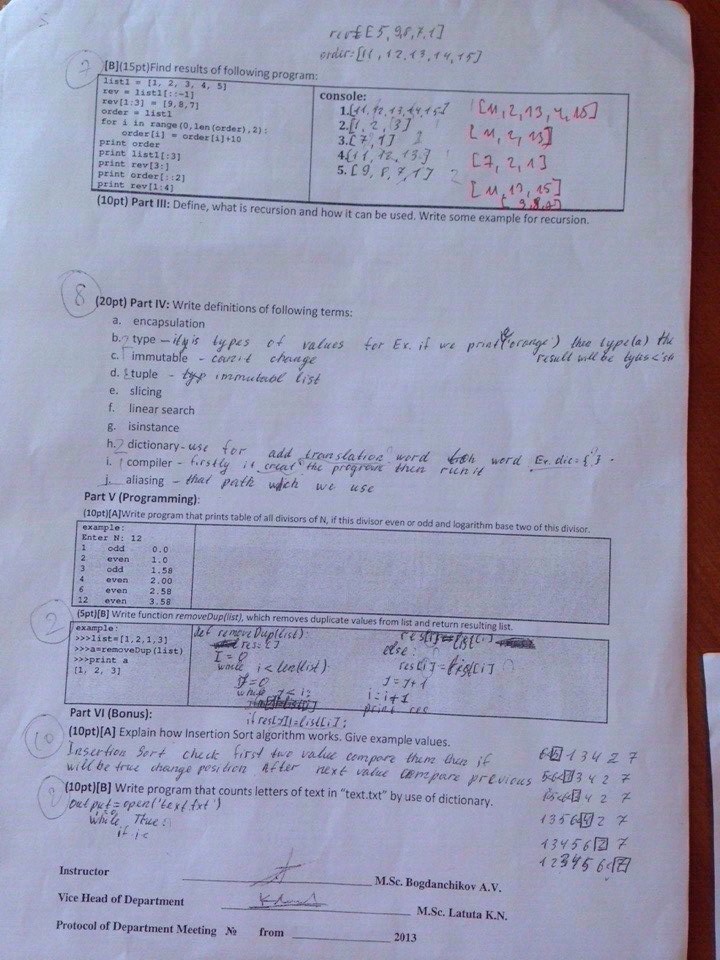 rev=[5,9,8,7,1]
order=[11,12,13,14,15]
7
[B](15pt)Find results of following program:
list1 = [1, 2, 3, 4, 5]
rev = list1[::-1]
rev[1:3] = [9,8,7]
order = list1
for i in range(0,len(order),2):
order[i] = order[i]+10
print order
print list1[:3]
print rev[3:]
print order[::2]
print rev[1:4]
console:
1.[11,12,13,14,15] [11,2,13,4,15]
2.[1,2,3] [11,2,13]
3.[7,1] 2 [7,2,1]
4.[11,12,13] [11,13,15]
5.[9,8,7,1] 2 [9,8,7]
(10pt) Part III: Define, what is recursion and how it can be used. Write some example for recursion.
8
(20pt) Part IV: Write definitions of following terms:
a. encapsulation
b. type - types of values for Ex. if we print('orange') then type(a) the
result will be
c. immutable - change
d. tuple - immutabl list
e. slicing
f. linear search
g. isinstance
h. dictionary - use for add translation word word Ex. dic={ }
i. compiler - firstly it creat the program then run it
j. aliasing - that path which we use
Part V (Programming):
(10pt)[A]Write program that prints table of all divisors of N, if this divisor even or odd and logarithm base two of this divisor.
example:
Enter N: 12
1 odd 0.0
2 even 1.0
3 odd 1.58
4 even 2.00
6 even 2.58
12 even 3.58
2
(5pt)[B] Write function removeDup(list), which removes duplicate values from list and return resulting list.
example:
>>>list=[1,2,1,3]
>>>a=removeDup(list)
>>>print a
[1, 2, 3]
def removeDup(list):
res=[]
I=0
while i<len(list):
J=0
while J<i:
if res[J]!=list[i]:
else:
J=J+1
i=i+1
print res
Part VI (Bonus):
10
(10pt)[A] Explain how Insertion Sort algorithm works. Give example values.
Insertion Sort check first two value compare them then if
will be true change position After next value compare previous
6 5 1 3 4 2 7
5 6 1 3 4 2 7
1 5 6 3 4 2 7
1 3 5 6 4 2 7
1 3 4 5 6 2 7
1 2 3 4 5 6 7
(10pt)[B] Write program that counts letters of text in "text.txt" by use of dictionary.
output=open('text.txt')
while True:
if i<
Instructor M.Sc. Bogdanchikov A.V.
Vice Head of Department M.Sc. Latuta K.N.
Protocol of Department Meeting № from 2013